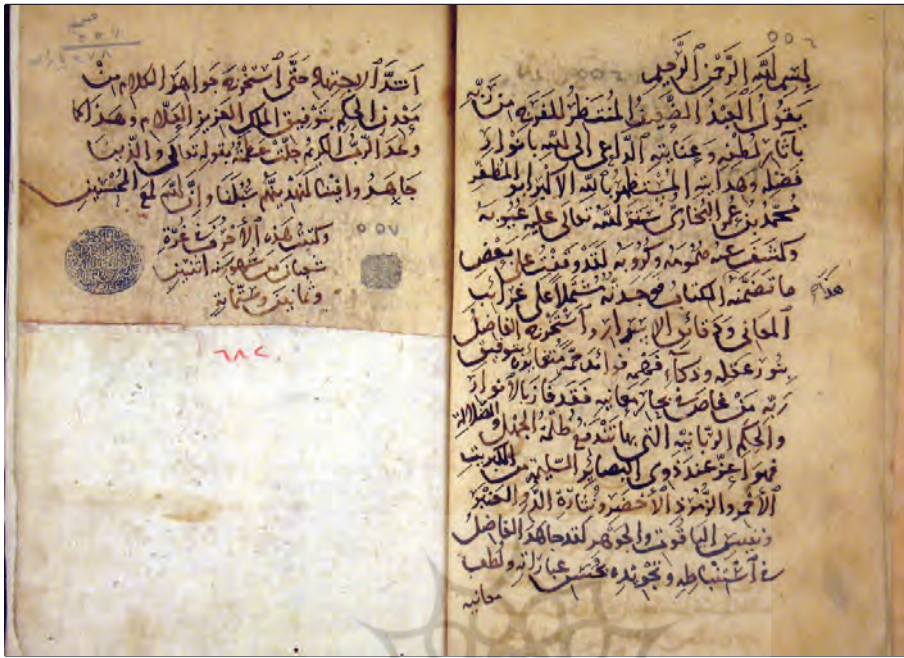 ٥٥٦
بسم الله الرحمن الرحيم
يقول العبد الضعيف المنتظر للفرج من ربه
بآثار لطفه وعنايته الداعي الى الله بانوار
فضله وهدايته المستظهر بالله الاكبر ابو المظفر
محمد بن عمر البخاري ستر الله تعالى عليه عيوبه
وكشف عنه همومه وكروبه لقد وقفت على بعض
ما تضمنه الكتاب فوجدته مشتملا على غرايب
هذا
المعاني ودقائق الاسرار واستخرج الفاضل
بنور عقله وذكاء فهمه فوائد جمة بتوفيق
ربه من غاص في بحار معانيه فقد فاز بالأنوار
والحكم الربانية التي بها تندفع ظلمة الجهل والضلالة
فهو اعز عند ذوي البصاير السليمة من الكبريت
الأحمر والزمرد الأخضر الدر والعنبر
ونفيس الياقوت والجوهر لقد جاهد الفاضل
في استنباطه وتجويده بحسن عباراته ولطف
معانيه
٥٥٧
اشد الاجتهاد حتى استخرج جواهر الكلام من
معدن الحكم بتوفيق الملك العزيز العلام وهذا كما
وعد الرب الكريم جلت عظمته بقوله تعالى والذين
جاهدوا فينا لنهدينهم سبلنا وان الله لمع المحسنين
وكتب هذه الأحرف في غرة
شعبان من شهور سنة اثنين
وثمانين وستمائة
٦٨٢